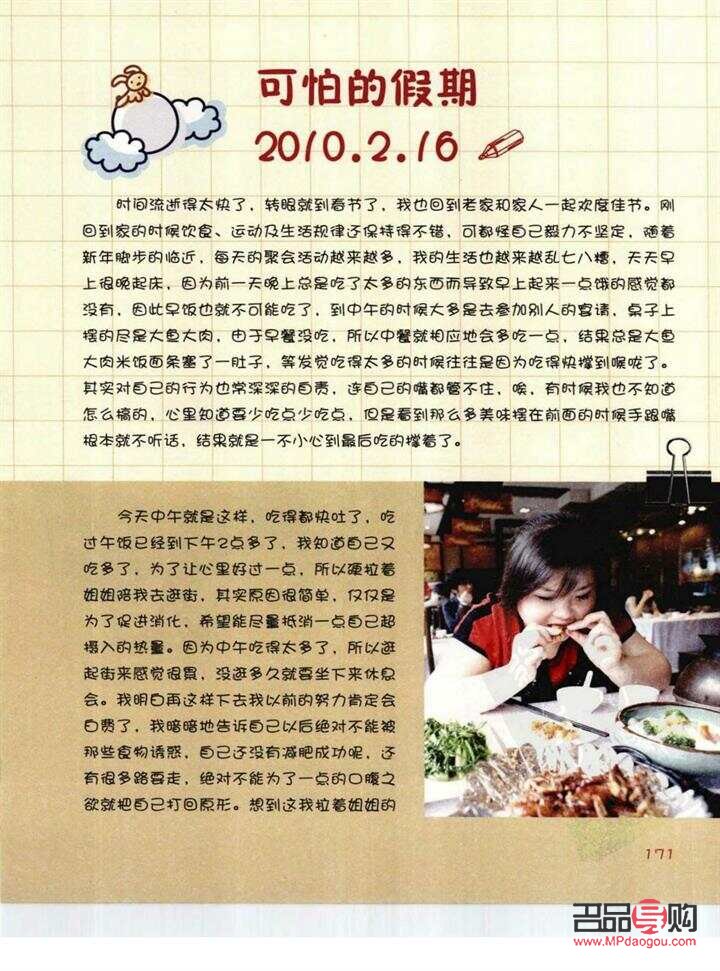 可怕的假期
2010.2.16
时间流逝得太快了，转眼就到春节了，我也回到老家和家人一起欢度佳节。刚
回到家的时候饮食、运动及生活规律还保持得不错，可都怪自己毅力不坚定，随着
新年脚步的临近，每天的聚会活动越来越多，我的生活也越来越乱七八糟，天天早
上很晚起床，因为前一天晚上总是吃了太多的东西而导致早上起来一点饿的感觉都
没有，因此早饭也就不可能吃了，到中午的时候大多是去参加别人的宴请，桌子上
摆的尽是大鱼大肉，由于早餐没吃，所以中餐就相应地会多吃一点，结果总是大鱼
大肉米饭面条塞了一肚子，等发觉吃得太多的时候往往是因为吃得快撑到喉咙了。
其实对自己的行为也常深深的自责，连自己的嘴都管不住，唉，有时候我也不知道
怎么搞的，心里知道要少吃点少吃点，但是看到那么多美味摆在前面的时候手跟嘴
根本就不听话，结果就是一不小心到最后吃的撑着了。
今天中午就是这样，吃得都快吐了，吃
过午饭已经到下午2点多了，我知道自己又
吃多了，为了让心里好过一点，所以硬拉着
姐姐陪我去逛街，其实原因很简单，仅仅是
为了促进消化，希望能尽量抵消一点自己超
摄入的热量。因为中午吃得太多了，所以逛
起街来感觉很累，没逛多久就要坐下来休息
会。我明白再这样下去我以前的努力肯定会
白费了，我暗暗地告诉自己以后绝对不能被
那些食物诱惑，自己还没有减肥成功呢，还
有很多路要走，绝对不能为了一点的口腹之
欲就把自己打回原形。想到这我拉着姐姐的
171
名品导购
www.MPdaogou.com